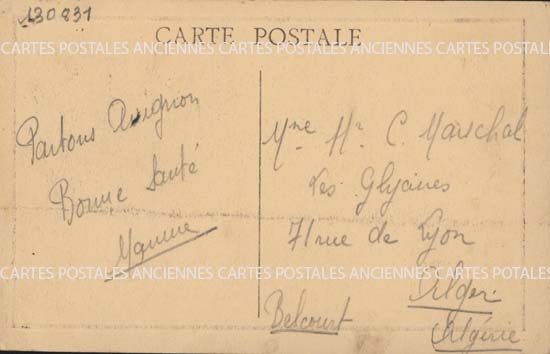 130831
CARTE POSTALE
CARTES POSTALES ANCIENNES CARTES POSTALES ANCIENNES CARTES POSTALES
Partons Avignon
Bonne Santé
Mme Mr C. Marschal
Les Glycines
71 rue de Lyon
Belcourt
Alger
Algérie
CARTES POSTALES ANCIENNES CARTES POSTALES ANCIENNES CARTES POSTALES